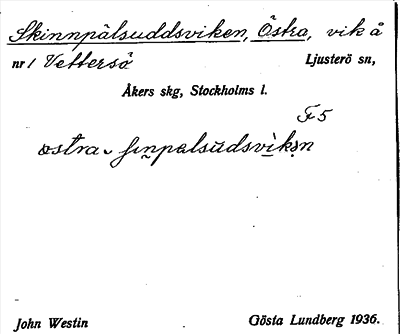 Skinnpälsuddsviken, Östra, vik å
nr 1 Vettersö Ljusterö sn,
Åkers skg, Stockholms l.
F5
östra
John Westin Gösta Lundberg 1936.